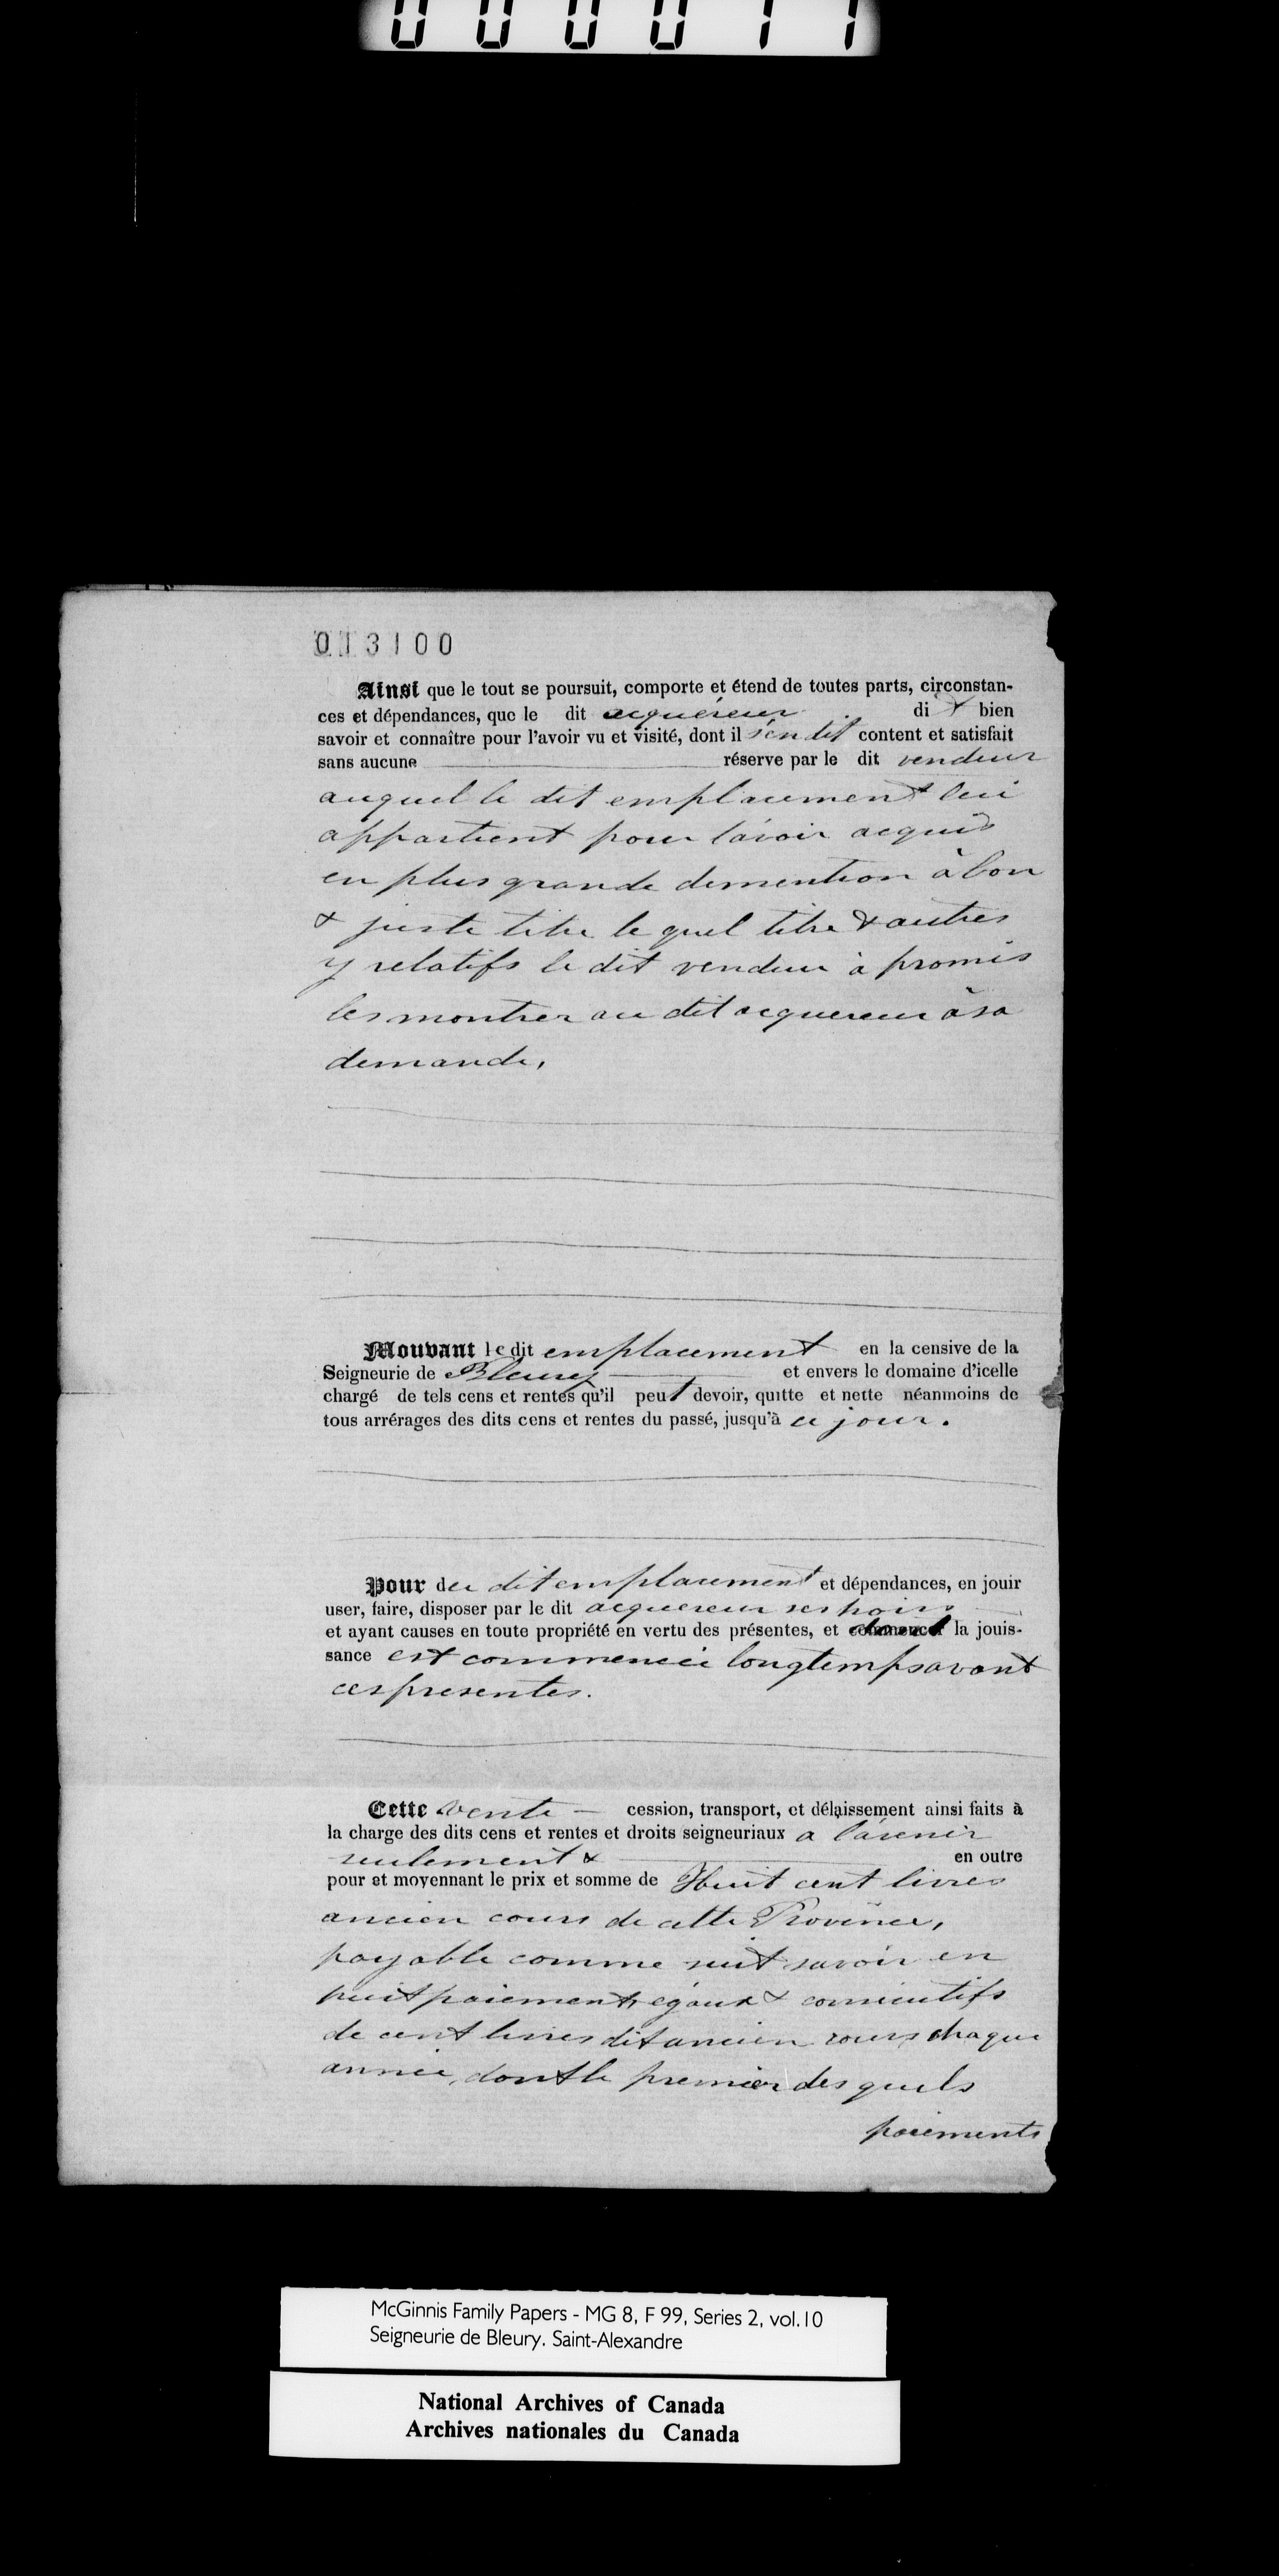 000011
013100
Ainsi que le tout se poursuit, comporte et étend de toutes parts, circonstan-
ces et dépendances, que le dit acquéreur dit bien
savoir et connaître pour l'avoir vu et visité, dont il s'en dit content et satisfait
sans aucune réserve par le dit vendeur
auquel le dit emplacement lui
appartient pour l'avoir acquis
en plus grande demention à bon
& juste titre le quel titre & autres
y relatifs le dit vendeur à promis
les montrer au dit acquereur à sa
demande.
Mouvant le dit emplacement en la censive de la
Seigneurie de Bleury et envers le domaine d'icelle
chargé de tels cens et rentes qu'il peut devoir, quitte et nette néanmoins de
tous arrérages des dits cens et rentes du passé, jusqu'à ce jour.
Pour du dit emplacement et dépendances, en jouir
user, faire, disposer par le dit acquereur ses hoirs
et ayant causes en toute propriété en vertu des présentes, et la jouis-
sance est commencée longtemps avant
ces presentes.
Cette vente cession, transport, et délaissement ainsi faits à
la charge des dits cens et rentes et droits seigneuriaux a l'avenir
seulement & en outre
pour et moyennant le prix et somme de Huit cent livres
ancien cours de cette Province,
payable comme suit savoir en
huit paiements égaux & consécutifs
de cent livres dit ancien cours chaque
année, dont le premier des quels
paiements
McGinnis Family Papers - MG 8, F 99, Series 2, vol.10
Seigneurie de Bleury. Saint-Alexandre
National Archives of Canada
Archives nationales du Canada